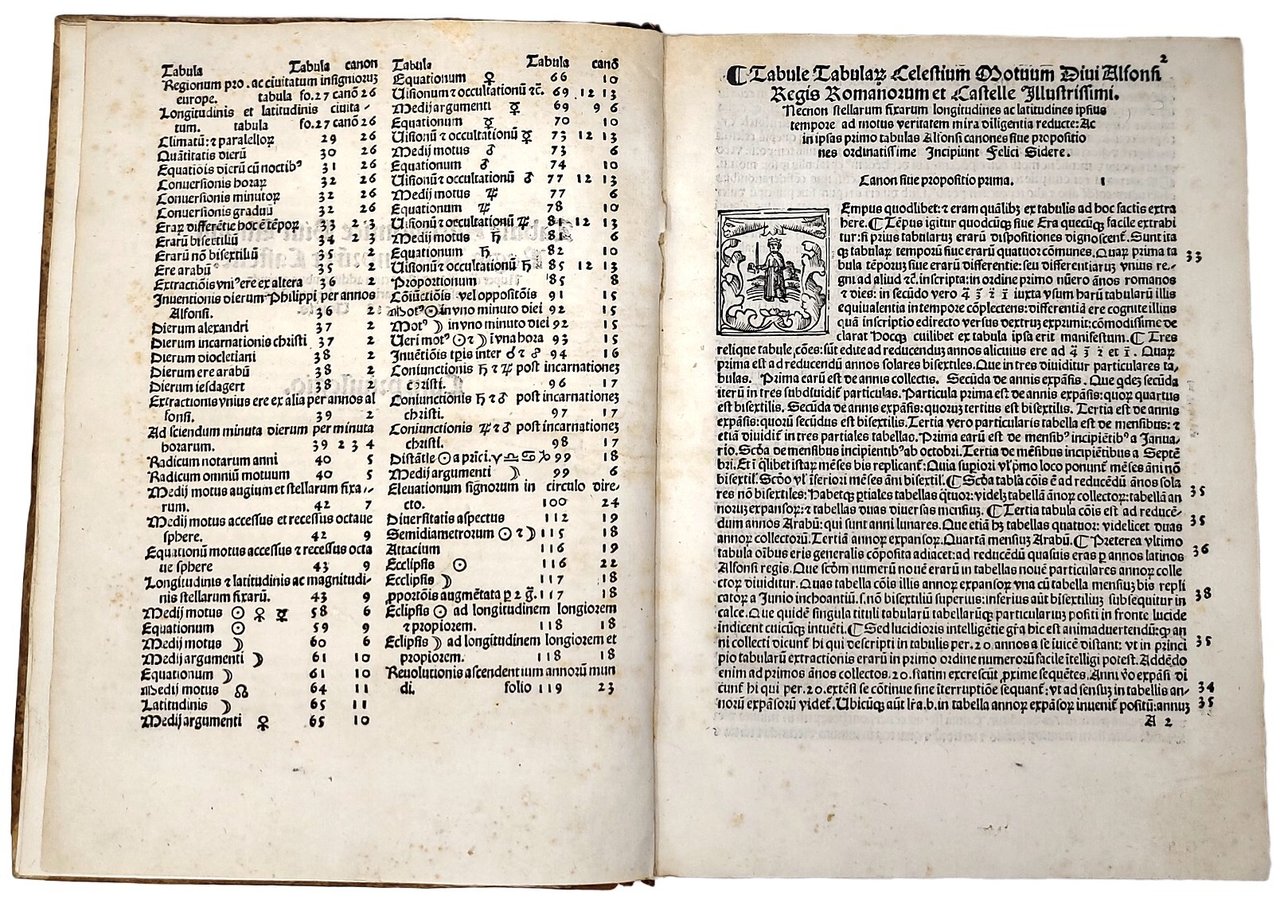 Tabula Tabula canon
Regionum pro. ac ciuitatum insigniorũ
europe. tabula fo.27 canõ 26
Longitudinis et latitudinis ciuita-
tum. tabula fo.27 canõ 26
Climatũ: ⁊ paralleloꝝ 29 26
Quãtitatis dierũ 30 26
Equatiõis dierũ cũ noctibꝰ 31 26
Conuersionis horaꝝ 32 26
Conuersionis minutoꝝ 32 26
Conuersionis graduũ 32 26
Eraꝝ differẽtie hoc ẽ tẽpoꝝ 33 2 3
Erarũ bisextiliũ 34 2 3
Erarũ nõ bisextiliũ 35 2
Ere arabũ 35 2
Extractiõis vniꝰ ere ex altera 36 2
Inuentionis dierum Philippi per annos
Alfonsi. 36 2
Dierum alexandri 37 2
Dierum incarnationis christi 37 2
Dierum diocletiani 38 2
Dierum ere arabũ 38 2
Dierum iesdagert 38 2
Extractionis vnius ere ex alia per annos al
fonsi. 39 2
Ad sciendum minuta dierum per minuta
horarum. 39 2 3 4
Radicum notarum anni 40 5
Radicum omniũ motuum 40 5
Medij motus augium et stellarum fixa-
rum. 42 7
Medij motus accessus et recessus octaue
sphere. 42 9
Equationũ motus accessus ⁊ recessus octa
ue sphere 43 9
Longitudinis ⁊ latitudinis ac magnitudi-
nis stellarum fixarũ. 43 9
Medij motus ☉ ♀ ☿ 58 6
Equationum ☉ 59 9
Medij motus ☽ 60 6
Medij argumenti ☽ 61 10
Equationum ☽ 61 10
Medij motus ☊ 64 11
Latitudinis ☽ 65 11
Medij argumenti ♀ 65 10
Tabula Tabula canõ
Equationum ♀ 66 10
Uisionum ⁊ occultationũ ⁊c̃. 69 12 13
Medij argumenti ☿ 69 9 6
Equationum ☿ 70 10
Uisionũ ⁊ occultationũ ☿ 73 12 13
Medij motus ♂ 73 6
Equationum ♂ 74 10
Uisionũ ⁊ occultationũ ♂ 77 12 13
Medij motus ♃ 77 6
Equationum ♃ 78 10
Uisionũ ⁊ occultationũ ♃ 81 12 13
Medij motus ♄ 81 6
Equationum ♄ 82 10
Uisionũ ⁊ occultationũ ♄ 85 12 13
Proportionum 85 8
Cõiũctiõis vel oppositiõis 91 15
Motꝰ ☉ in vno minuto diei 92 15
Motꝰ ☽ in vno minuto diei 92 15
Ueri motꝰ ☉ ⁊ ☽ ĩ vna hora 93 15
Inuẽtiõis tp̃is inter ☌ ⁊ ☍ 94 16
Coniunctionis ♄ ⁊ ♃ post incarnationez
christi. 96 17
Coniunctionis ♄ ⁊ ♂ post incarnationez
christi. 97 17
Coniunctionis ♃ ⁊ ♂ post incarnationez
christi. 98 17
Distãtie ☉ a prĩci. ♈ ♎ ♋ ♑ 99 18
Medij argumenti ☽ 99 6
Eleuationum signorum in circulo dire-
cto. 100 24
Diuersitatis aspectus 112 19
Semidiametrorum ☉ ⁊ ☽ 115 18
Attacium 116 19
Ecclipsis ☉ 116 22
Ecclipsis ☽ 117 18
ꝓportõis augmẽtata p̱ 2 g̃. 117 18
Eclipsis ☉ ad longitudinem longiorem
⁊ propiorem. 118 18
Eclipsis ☽ ad longitudinem longiorem et
propiorem. 118 18
Reuolutionis ascendentium annorũ mun
di. folio 119 23
2
¶ Tabule Tabulaꝝ Celestium Motuum Diui Alfonsi
Regis Romanorum et Castelle Illustrissimi.
Necnon stellarum fixarum longitudines ac latitudines ipsius
tempore ad motus veritatem mira diligentia reducte: Ac
in ipsas primo tabulas Alfonsi canones siue propositio
nes ordinatissime Incipiunt Felici Sidere.
Canon siue propositio prima. 1
Empus quodlibet: ⁊ eram quãlibꝫ ex tabulis ad hoc factis extra
here. ¶ Tẽpus igitur quodcũqꝫ siue Era quecũqꝫ facile extrahi
tur: si prius tabularuꝫ erarũ dispositiones dignoscent̃. Sunt ita
qꝫ tabularum temporũ siue erarũ quatuor cõmunes. Quaꝝ prima ta 33
bula tẽporuꝫ siue erarũ differentie: seu differentiaruꝫ vnius re-
gni ad aliud ⁊c̃. inscripta: in ordine primo nũero ãnos romanos
⁊ dies: in secũdo vero 4̃ 3̃ 2̃ 1̃ iuxta vsum harũ tabularũ illis
equiualentia intempore cõplectens: differentiã ere cognite illius
quã inscriptio edirecto versus dextruꝫ exprimit: cõmodissime de
clarat hocqꝫ cuilibet ex tabula ipsa erit manifestum. ¶ Tres
relique tabule cões: sũt edite ad reducenduꝫ annos alicuius ere ad 4̃ 3̃ 2̃ et 1̃. Quaꝝ
prima est ad reducendũ annos solares bisextiles. Que in tres diuiditur particulares ta-
bulas. Prima earũ est de annis collectis. Secũda de annis expãsis. Que qdẽ secũda
iterũ in tres subdiuidit̃ particulas. Particula prima est de annis expãsis: quoꝝ quartus
est bisextilis. Secũda de annis expãsis: quoruꝫ tertius est bisextilis. Tertia est de annis
expãsis: quorũ secũdus est bisextilis. Tertia vero particularis tabella est de mensibus: ⁊
etiã diuidit̃ in tres partiales tabellas. Prima earũ est de mensibꝰ incipiẽtibꝰ a Janua-
rio. Scõa de mensibus incipientibus ab octobri. Tertia de mẽsibus incipiẽtibus a Septẽ
bri. Et ĩ qlibet istaꝝ mẽses bis replicant̃: Quia supiori vl̓ pmo loco ponunt̃ mẽses ãni nõ
bisextil̓. Scõo vl̓ ĩferiori mẽses ãni bisextil̓. ¶ Scõa tabl̓a cõis ẽ ad reducẽdũ ãnos sola
res nõ bisextiles: Habetqꝫ ptiales tabellas q̃tuor: videlꝫ tabellã ãnoꝝ collectoꝝ: tabellã an 35
noruꝫ expansoꝝ: ⁊ tabellas duas diuersas mensiuꝫ. ¶ Tertia tabula cõis est ad reducẽ-
dum annos Arabũ: qui sunt anni lunares. Que etiã hꝫ tabellas quatuor: videlicet duas 35
annoꝝ collectorũ. Tertiã annoꝝ expansoꝝ. Quartã mensiuꝫ Arabũ. ¶ Preterea vltimo
tabula oĩbus eris generalis cõposita adiacet: ad reducẽdũ quasuis eras p̱ annos latinos 36
Alfonsi regis. Que scõm numerũ nouẽ erarũ in tabellas nouẽ particulares annoꝝ colle
ctoꝝ diuiditur. Quas tabella cõis illis annoꝝ expansoꝝ vna cũ tabella mensiuꝫ bis repli
catoꝝ a Junio inchoantiũ. s. nõ bisextiliũ superius: inferius aũt bisextiliũ subsequitur in 38
calce. Que quidẽ singula tituli tabularũ tabellarũqꝫ particularuꝫ positi in fronte lucide
indicent cuicũqꝫ intuẽti. ¶ Sed lucidioris intelligẽtie gr̃a hic est animaduertendũ: qꝫ an
ni collecti dicunt̃ hi qui descripti in tabulis per .20. annos a se iuicẽ distant: vt in princi 35
pio tabularũ extractionis erarũ in primo ordine numerorũ facile ĩtelligi potest. Addẽdo
enim ad primos ãnos collectos .20. statim excrescũt ꝓxime sequẽtes. Anni ṽo expãsi di
cunt̃ hi qui per .20. extẽsi se cõtinue sine ĩterruptiõe sequant̃: vt ad sensuꝫ in tabellis an- 34
norũ expãsorũ videt̃. Ubicũqꝫ aũt lr̃a .b. in tabella annoꝝ expãsoꝝ inuenit̃ positũ: annuꝫ 35
A 2